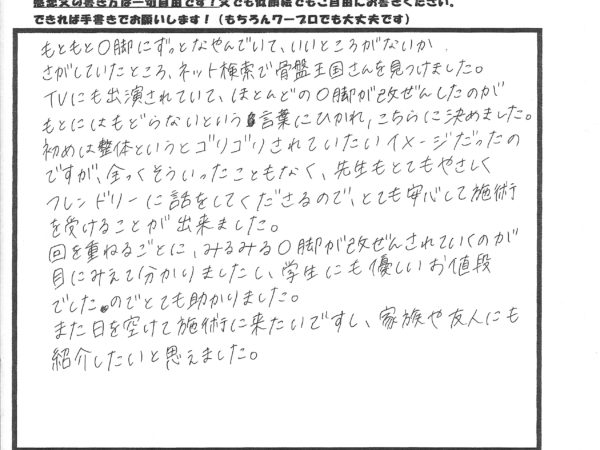 感想文の書き方は一切自由です！文でも似顔絵でもご自由にお書きください。
できれば手書きでお願いします！（もちろんワープロでも大丈夫です）
もともとO脚にずっとなやんでいて、いいところがないか
さがしていたところ、ネット検索で骨盤王国さんを見つけました。
TVにも出演されていて、ほとんどのO脚が改ぜんしたのが
もとにはもどらないという言葉にひかれ、こちらに決めました。
初めは整体というとゴリゴリされていたいイメージだったの
ですが、全っくそういったこともなく、先生もとてもやさしく
フレンドリーに話をしてくださるので、とても安心して施術
を受けることが出来ました。
回を重ねるごとに、みるみるO脚が改ぜんされていくのが
目にみえて分かりましたし、学生にも優しいお値段
でしたのでとても助かりました。
また日を空けて施術に来たいですし、家族や友人にも
紹介したいと思えました。